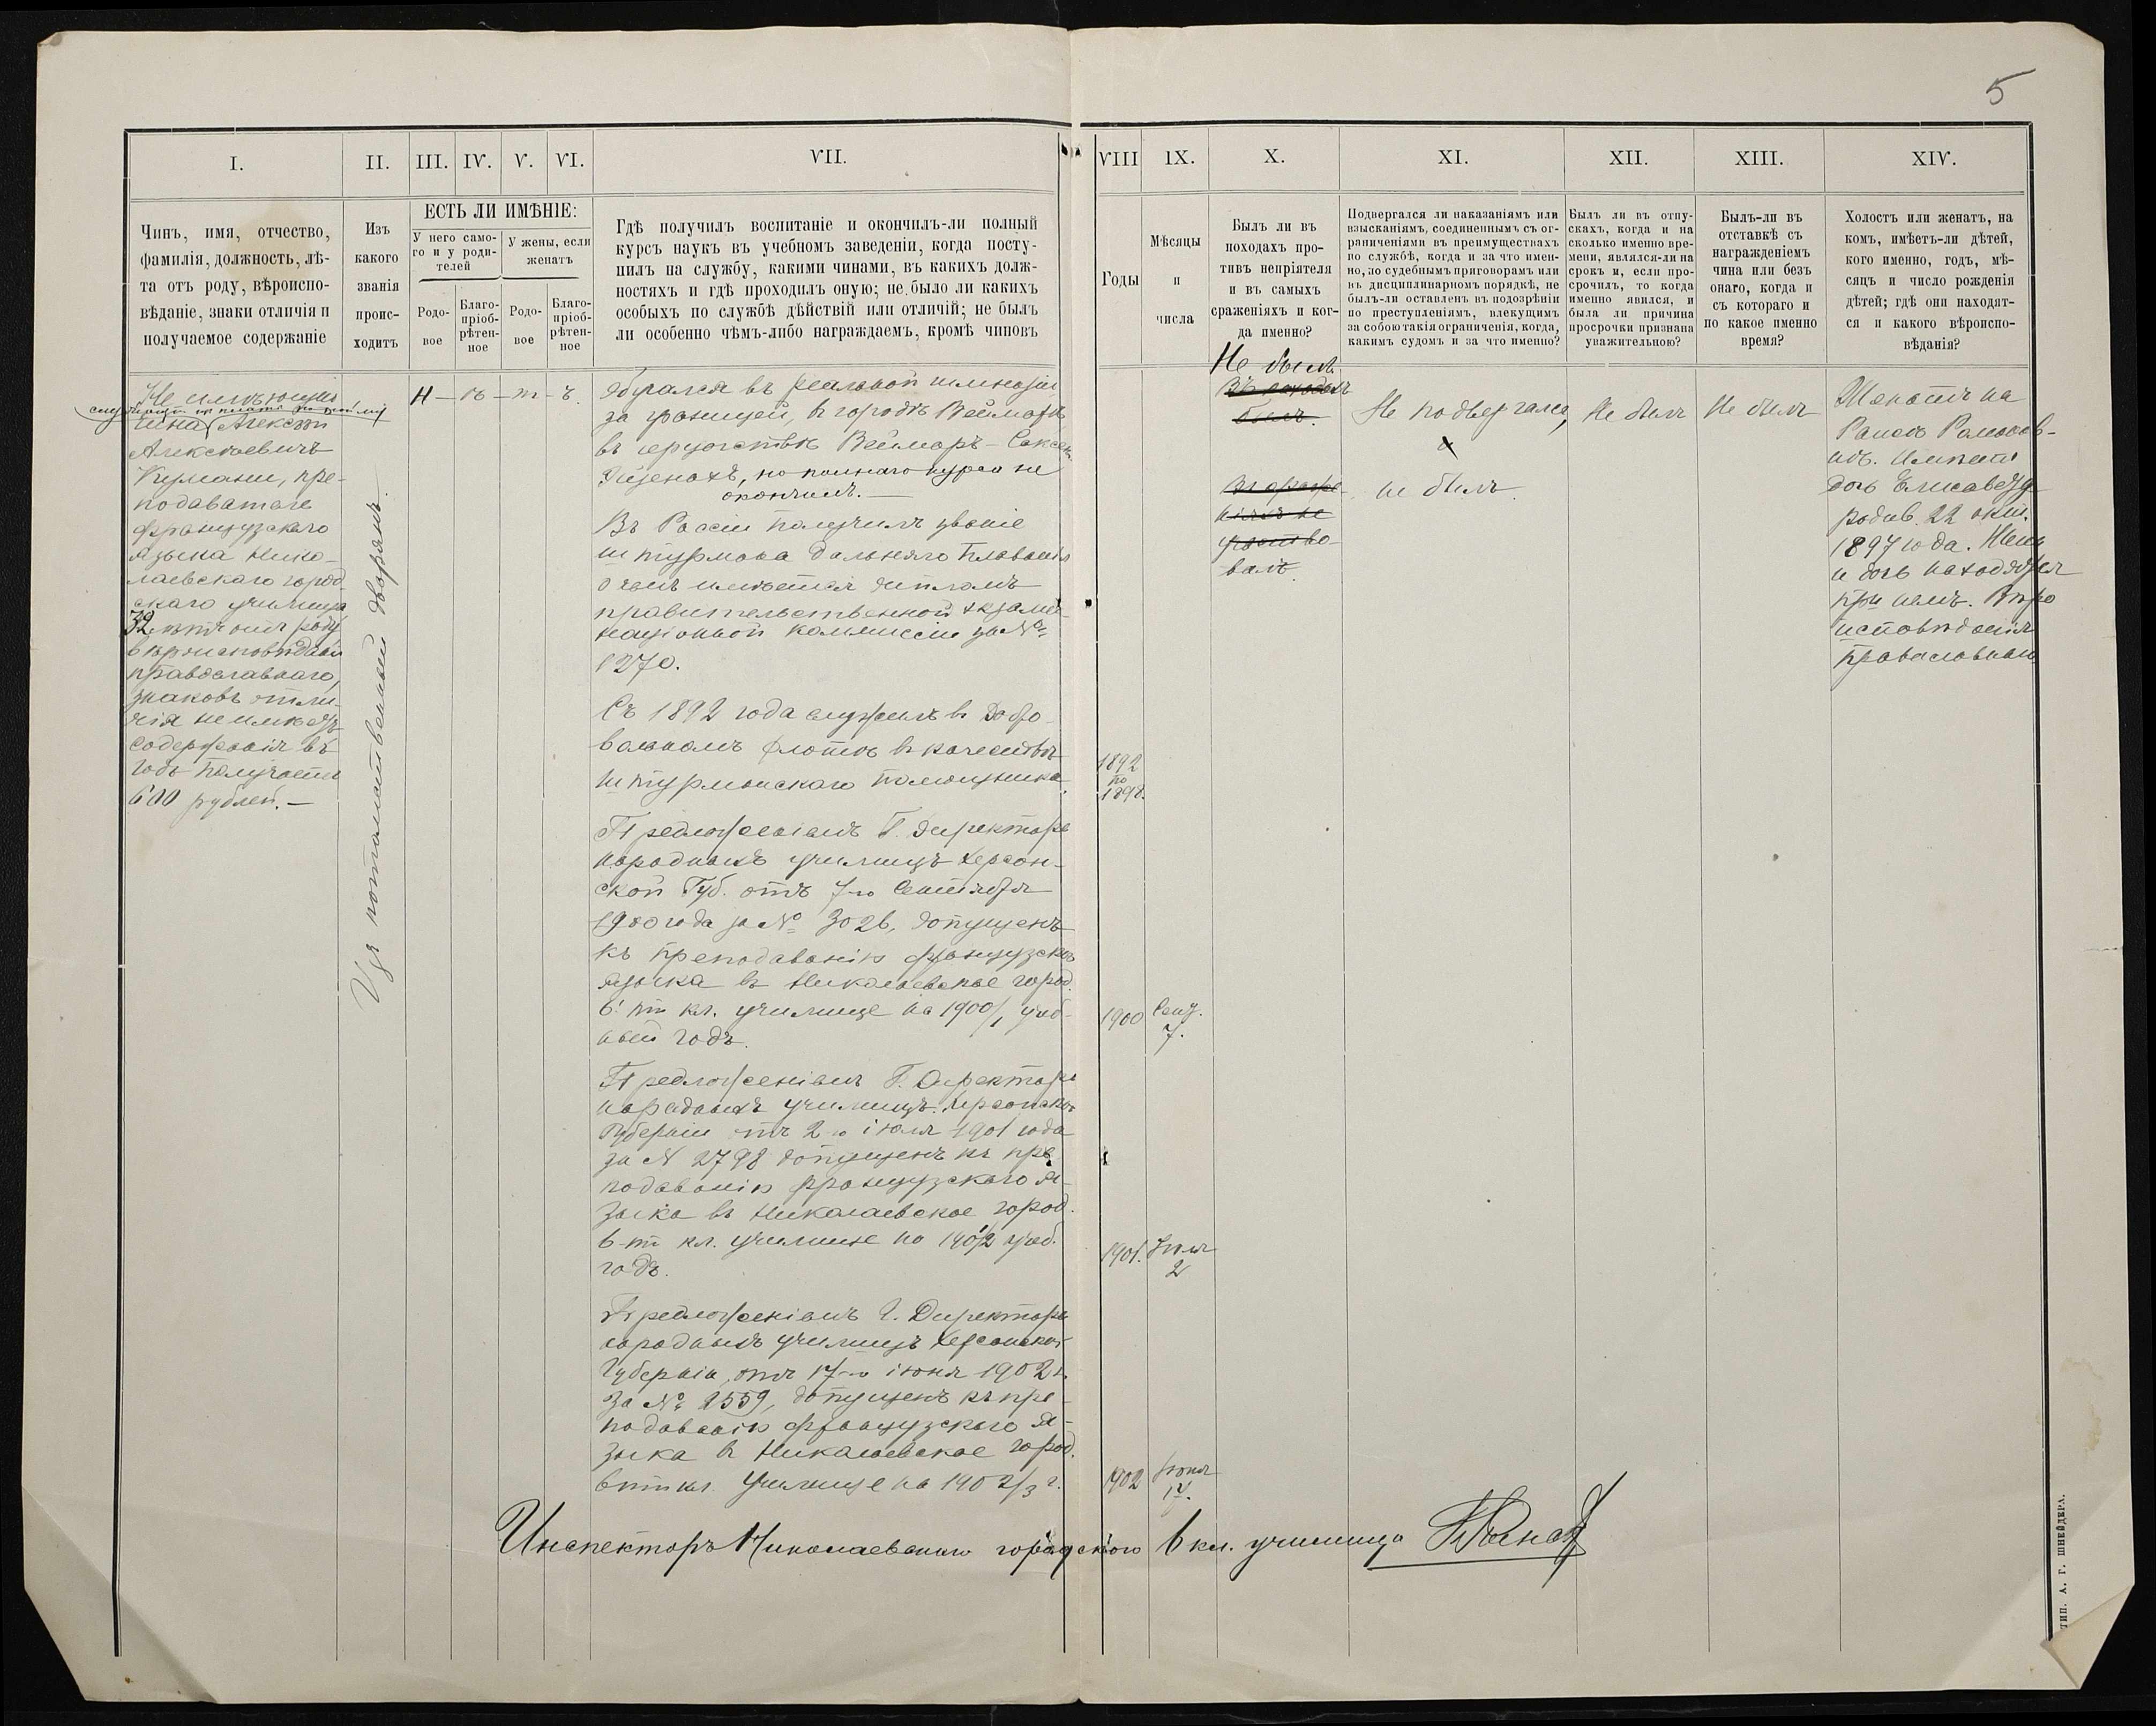 5
I.
II.
III.
IV.
V.
VI.
VII.
VIII
IX.
X.
XI.
XII.
XIII.
XIV.
Чинъ, имя, отчество,
фамилія, должность, лѣ-
та отъ роду, вѣроиспо-
вѣданіе, знаки отличія и
получаемое содержаніе
Изъ
какого
званія
проис-
ходитъ
ЕСТЬ ЛИ ИМѢНІЕ:
У него само-
го и у роди-
телей
У жены, если
женатъ
Родо-
вое
Благо-
пріоб-
рѣтен-
ное
Родо-
вое
Благо-
пріоб-
рѣтен-
ное
Гдѣ получилъ воспитаніе и окончилъ-ли полный
курсъ наукъ въ учебномъ заведеніи, когда посту-
пилъ на службу, какими чинами, въ какихъ долж-
ностяхъ и гдѣ проходилъ оную; не было ли какихъ
особыхъ по службѣ дѣйствій или отличій; не былъ
ли особенно чѣмъ-либо награждаемъ, кромѣ чиновъ
Годы
Мѣсяцы
и
числа
Былъ ли въ
походахъ про-
тивъ непріятеля
и въ самыхъ
сраженіяхъ и ког-
да именно?
Подвергался ли наказаніямъ или
взысканіямъ, соединеннымъ съ ог-
раниченіями въ преимуществахъ
по службѣ, когда и за что имен-
но, по судебнымъ приговорамъ или
въ дисциплинарномъ порядкѣ, не
былъ-ли оставленъ въ подозрѣніи
по преступленіямъ, влекущимъ
за собою такія ограниченія, когда,
какимъ судомъ и за что именно?
Былъ ли въ отпу-
скахъ, когда и на
сколько именно вре-
мени, являлся-ли на
срокъ и, если про-
срочилъ, то когда
именно явился, и
была ли причина
просрочки признана
уважительною?
Былъ-ли въ
отставкѣ съ
награжденіемъ
чина или безъ
онаго, когда и
съ котораго и
по какое именно
время?
Холостъ или женатъ, на
комъ, имѣетъ-ли дѣтей,
кого именно, годъ, мѣ-
сяцъ и число рожденія
дѣтей; гдѣ они находят-
ся и какого вѣроиспо-
вѣданія?
Не имѣющій
чина Алексѣй
Алексѣевичъ
Кумани, пре-
подаватель
французскаго
языка Нико-
лаевскаго город
скаго училища
32 лѣтъ отъ роду
вѣроисповѣданія
православнаго,
знаковъ отли-
чія не имѣетъ
содержанія въ
годъ получаетъ
600 рублей. —
Изъ потомственныхъ дворянъ.
Н — ѣ — т — ъ.
Обучался въ реальной гимназіи
за границей, въ городѣ Веймарѣ
въ герцогствѣ Веймаръ - Саксенъ
Эйзенахъ, но полнаго курса не
окончилъ. —
Въ Россіи получилъ званіе
штурмана дальняго плаванія
о чемъ имѣется дипломъ
правительственной экзаме-
націонной коммиссіи за №
1270.
Съ 1892 года служилъ въ Добро-
вольномъ флотѣ въ качествѣ
штурманскаго помощника.
1892
по
1898.
Предложеніемъ Г. Директора
народныхъ училищъ Херсон-
ской Губ. отъ 7-го Сентября
1900 года за № 3026, допущенъ
къ преподаванію французскаго
языка въ Николаевское город.
6-ти кл. училище на 1900/1 учеб-
ный годъ.
1900
Сент.
7.
Предложеніемъ Г. Директора
народныхъ училищъ Херсонской
Губерніи отъ 2-го іюля 1901 года
за № 2798 допущенъ къ пре-
подаванію французскаго я-
зыка въ Николаевское город.
6-ти кл. училище на 1901/2 учеб.
годъ.
1901.
Іюля
2
Предложеніемъ Г. Директора
народныхъ училищъ Херсонской
Губерніи, отъ 17-го іюня 1902 г.
за № 2559, допущенъ къ пре-
подаванію французскаго я-
зыка въ Николаевское город.
6 ти кл. училище на 1902/3 г.
1902
Іюня
17.
Не былъ
въ походахъ
былъ.
валъ.
Не подвергался,
не былъ.
Не былъ
Не былъ
Женатъ на
Имѣетъ
дочь Елисавету
родив. 22 окт.
1897 года. Жена
и дочь находятся
при немъ. Вѣро
исповѣданія
православнаго
Инспекторъ Николаевскаго городского 6 кл. училища
ТИП. А. Г. ШНЕЙДЕРА.